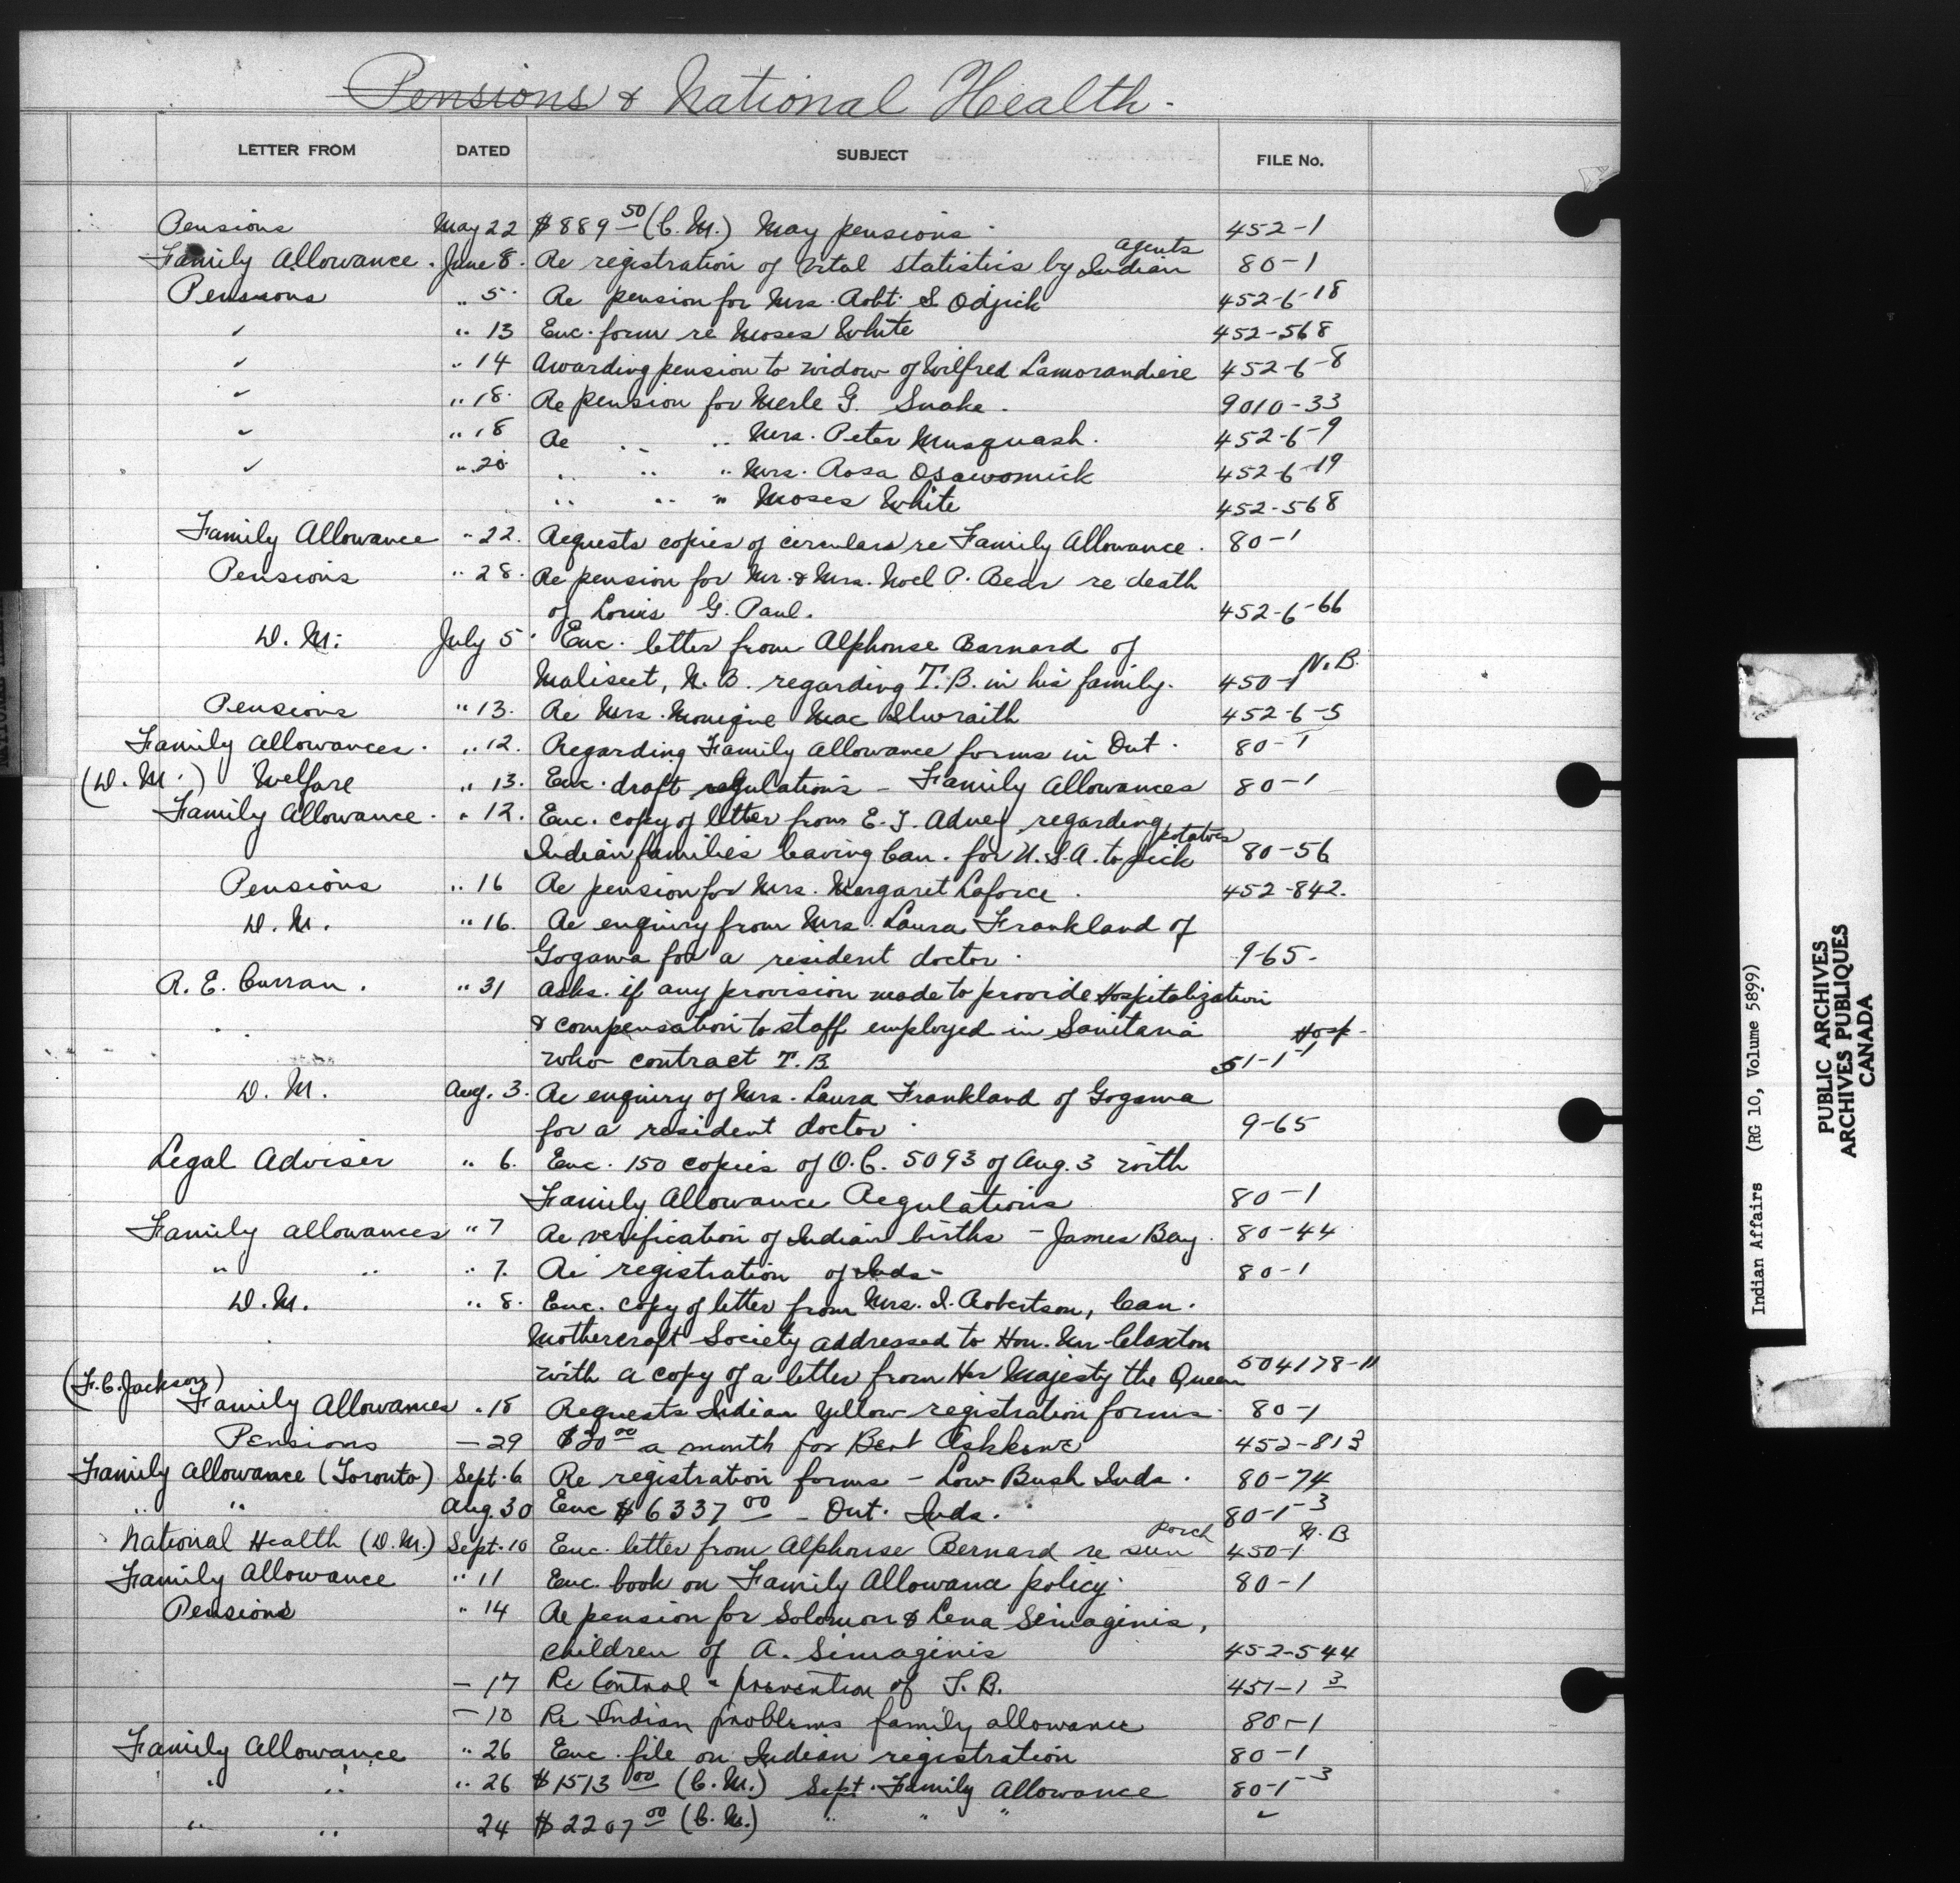 Pensions & National Health -
LETTER FROM DATED SUBJECT FILE No.
Pensions May 22 $889 50 (C.M.) May pensions 452-1
Family Allowance. June 8. Re registration of vital statistics by Indian agents 80-1
Pensions " 5 Re pension for Mrs. Robt. S Odjick 452-6-18
" " 13 Enc. form re Moses White 452-568
" " 14 Awarding pension to widow of Wilfred Lamorandiere 452-6-8
" " 18. Re pension for Merle G. Snake. 9010-33
" " 18 Re " " Mrs. Peter Musquash. 452-6-9
" " 20 " " " Mrs. Rosa Osawomick 452-6-19
" " " Moses White 452-568
Family Allowance " 22. Requests copies of circulars re Family Allowance. 80-1
Pensions " 28. Re pension for Mr. & Mrs. Noel P. Bear re death
of Louis G. Paul. 452-6-66
D.M. July 5 Enc. letter from Alphonse Barnard of
Maliseet, N.B. regarding T.B. in his family. 450-1 N.B.
Pensions " 13. Re Mrs. Monique Mac Ilwraith 452-6-5
Family Allowances. " 12. Regarding Family Allowance forms in Ont. 80-1
(D.M.) Welfare " 13. Enc. draft regulations - Family Allowances 80-1
Family Allowance. " 12. Enc. copy of letter from E.T. Adney regarding
Indian families leaving Can. for U.S.A. to pick potatoes 80-56
Pensions " 16 Re pension for Mrs. Margaret Laforce. 452-842.
D.M. " 16. Re enquiry from Mrs. Laura Frankland of
Gogama for a resident doctor. 9-65-
R.E. Curran. " 31 Asks if any provision made to provide Hospitalization
& compensation to staff employed in Sanitaria Hosp-
who contract T.B. 51-1-1
D.M. Aug. 3. Re enquiry of Mrs. Laura Frankland of Gogama
for a resident doctor. 9-65
Legal Adviser " 6. Enc. 150 copies of O.C. 5093 of Aug. 3 with
Family Allowance Regulations 80-1
Family allowances " 7 Re verification of Indian births - James Bay. 80-44
" " " 7. Re registration of Inds- 80-1
D.M. " 8. Enc. copy of letter from Mrs. I. Robertson, Can.
Mothercraft Society addressed to Hon. Mr Claxton
with a copy of a letter from Her Majesty the Queen 504178-11
(F.C. Jackson)
Family Allowances " 18 Requests Indian Yellow registration forms. 80-1
Pensions - 29 $20 00 a month for Bert 452-813
Family Allowance (Toronto) Sept. 6 Re registration forms - Low Bush Inds. 80-74
" " Aug. 30 Enc $6337 00 - Ont. Inds. 80-1-3
National Health (D.M.) Sept. 10 Enc. letter from Alphonse Bernard re sun porch 450-1 N.B
Family Allowance " 11 Enc. book on Family Allowance policy. 80-1
Pensions " 14 Re pension for Solomon & Lena Simaginis,
children of A. Simaginis 452-544
- 17 Re Control & prevention of T.B. 451-1-3
- 10 Re Indian problems family allowance 80-1
Family Allowance " 26 Enc. file on Indian registration 80-1
" " " 26 $1513 00 (C.M.) Sept. Family Allowance 80-1-3
" " 24 $2207 00 (C.M.) " " " "
Indian Affairs (RG 10, Volume 5899)
PUBLIC ARCHIVES
ARCHIVES PUBLIQUES
CANADA